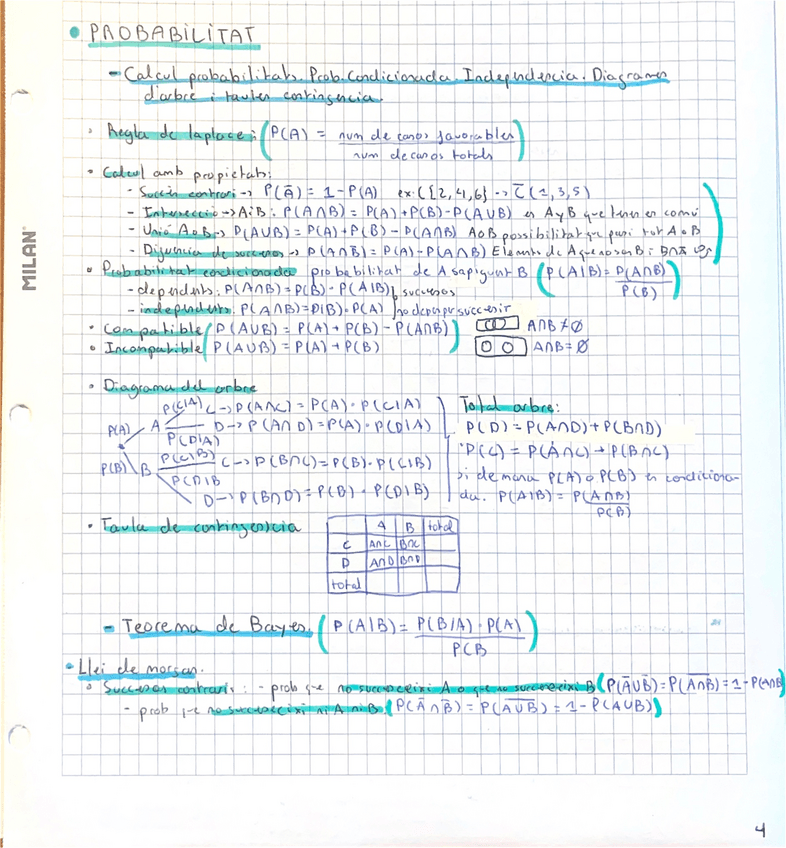 • PROBABILITAT
- Calcul probabilitats. Prob. Condicionada. Independencia. Diagrames
d'arbre i taules contingencia.
• Regla de laplace: (P(A) = num de casos favorables / num de casos totals)
• Calcul amb propietats:
- Succés contrari -> P(Ā) = 1 - P(A) ex: C{2,4,6} -> C̄(1,3,5)
- Intersecció -> A i B: P(A∩B) = P(A) + P(B) - P(A∪B) es A y B que tenen en comú
- Unió A o B -> P(A∪B) = P(A) + P(B) - P(A∩B) A o B possibilitat que passi tot A o B
- Diferencia de succesos -> P(A∩B̄) = P(A) - P(A∩B) Elements de A que no son B i B∩Ā
• Probabilitat condicionada probabilitat de A sapiguent B (P(A|B) = P(A∩B) / P(B))
- dependents: P(A∩B) = P(B) · P(A|B) succesos
- independents: P(A∩B) = P(B) · P(A) no depen per succeir
• Compatible (P(A∪B) = P(A) + P(B) - P(A∩B)) A∩B ≠ Ø
• Incompatible (P(A∪B) = P(A) + P(B) A∩B = Ø
• Diagrama del arbre
P(A) A P(C|A) C -> P(A∩C) = P(A) · P(C|A)
P(D|A) D -> P(A∩D) = P(A) · P(D|A)
P(B) B P(C|B) C -> P(B∩C) = P(B) · P(C|B)
P(D|B D -> P(B∩D) = P(B) · P(D|B)
Total arbre:
P(D) = P(A∩D) + P(B∩D)
P(C) = P(A∩C) + P(B∩C)
Si demana P(A) o P(B) es condiciona-
da. P(A|B) = P(A∩B) / P(B)
• Taula de contingencia
A B total
C A∩C B∩C
D A∩D B∩D
total
- Teorema de Bayes (P(A|B) = P(B|A) · P(A) / P(B)
• Llei de morgan.
• Succesos contraris: - prob que no succeeixi A o que no succeeixi B (P(Ā∪B̄) = P(A∩B)‾ = 1 - P(A∩B)
- prob que no succeeixi ni A ni B (P(Ā∩B̄) = P(A∪B)‾ = 1 - P(A∪B))
MILAN
4